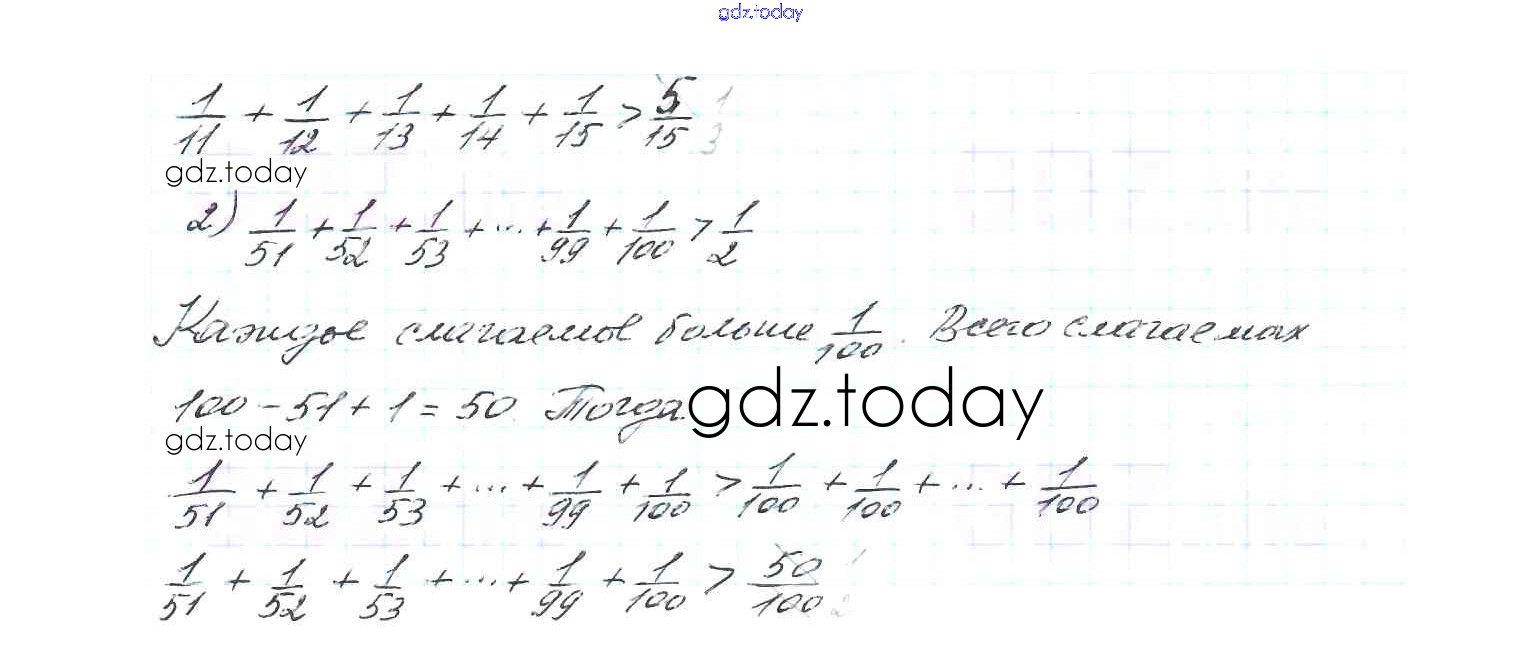 gdz.today
1/11 + 1/12 + 1/13 + 1/14 + 1/15 > 5/15 1/3
gdz.today
2) 1/51 + 1/52 + 1/53 + ... + 1/99 + 1/100 > 1/2
Каждое слагаемое больше 1/100. Всего слагаемах
100 - 51 + 1 = 50. Тогда
gdz.today
gdz.today
1/51 + 1/52 + 1/53 + ... + 1/99 + 1/100 > 1/100 + 1/100 + ... + 1/100
1/51 + 1/52 + 1/53 + ... + 1/99 + 1/100 > 50/100 1/2